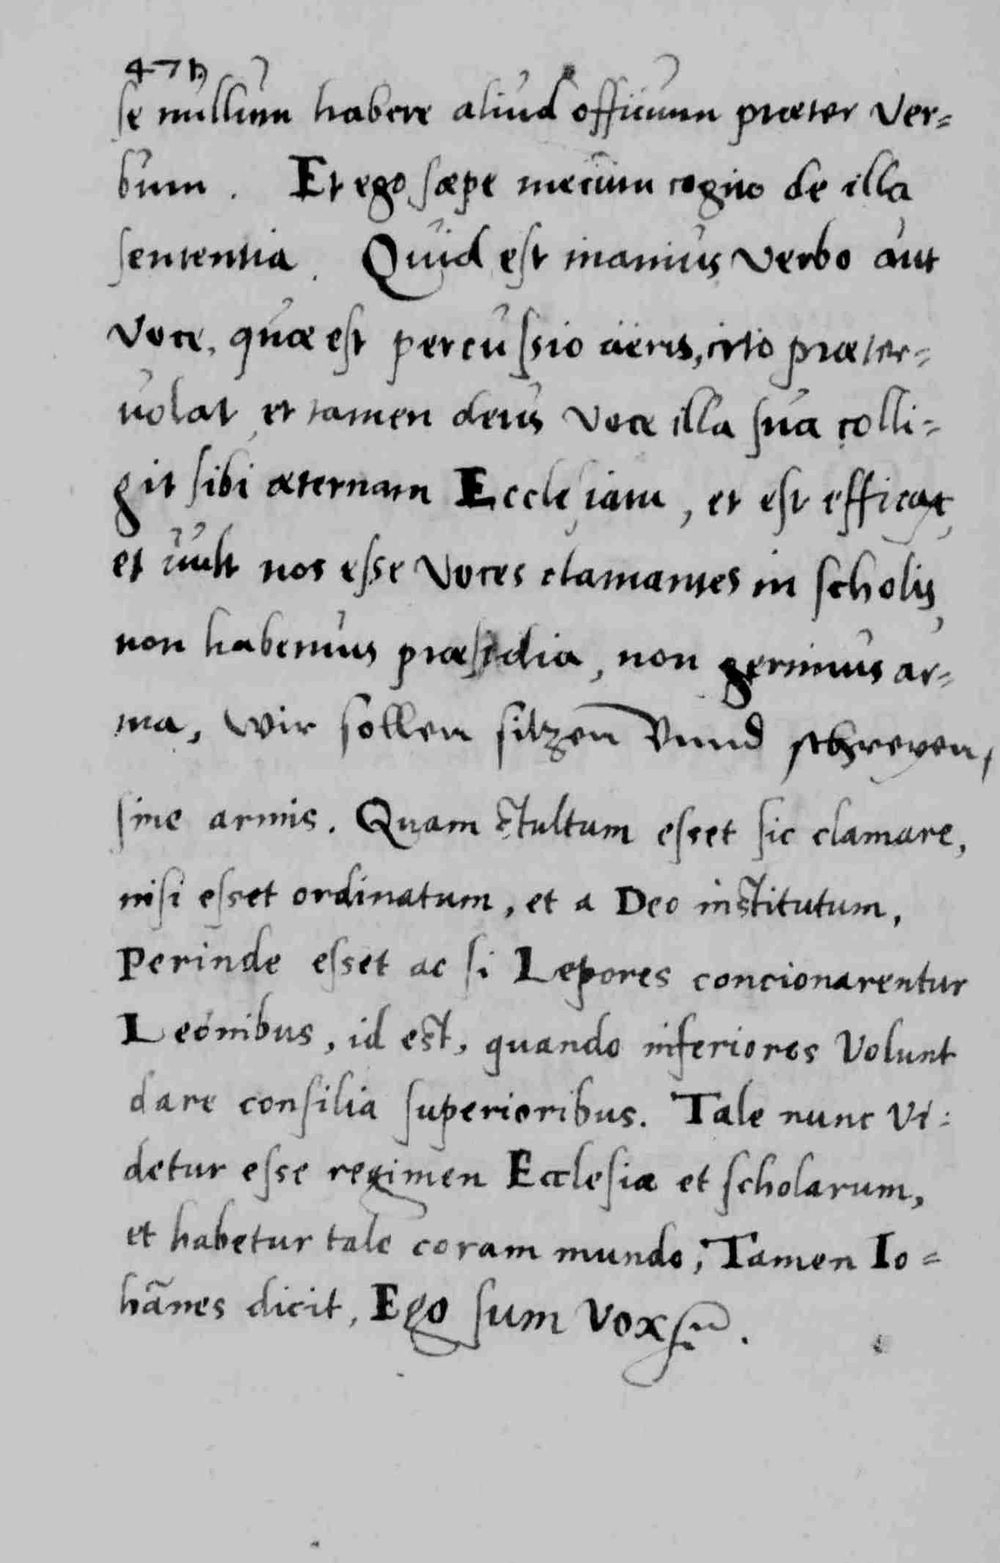 47b
se nullum habere aliud officium præter Ver=
bum. Et ego sæpe mecum cogito de illa
sententia. Quid est inanius Verbo aut
Voce, quæ est percussio aëris, cito præter=
uolat, et tamen deus Voce illa sua colli=
git sibi æternam Ecclesiam, et est efficax,
et uult nos esse Voces clamantes in scholis,
non habemus præsidia, non gerimus ar=
ma, Wir sollen sitzen Vnnd schreyen,
sine armis. Quam stultum esset sic clamare,
nisi esset ordinatum, et a Deo institutum,
Perinde esset ac si Lepores concionarentur
Leonibus, id est, quando inferiores Volunt
dare consilia superioribus. Tale nunc Vi=
detur esse regimen Ecclesiæ et scholarum,
et habetur tale coram mundo, Tamen Io=
hañes dicit, Ego sum Vox